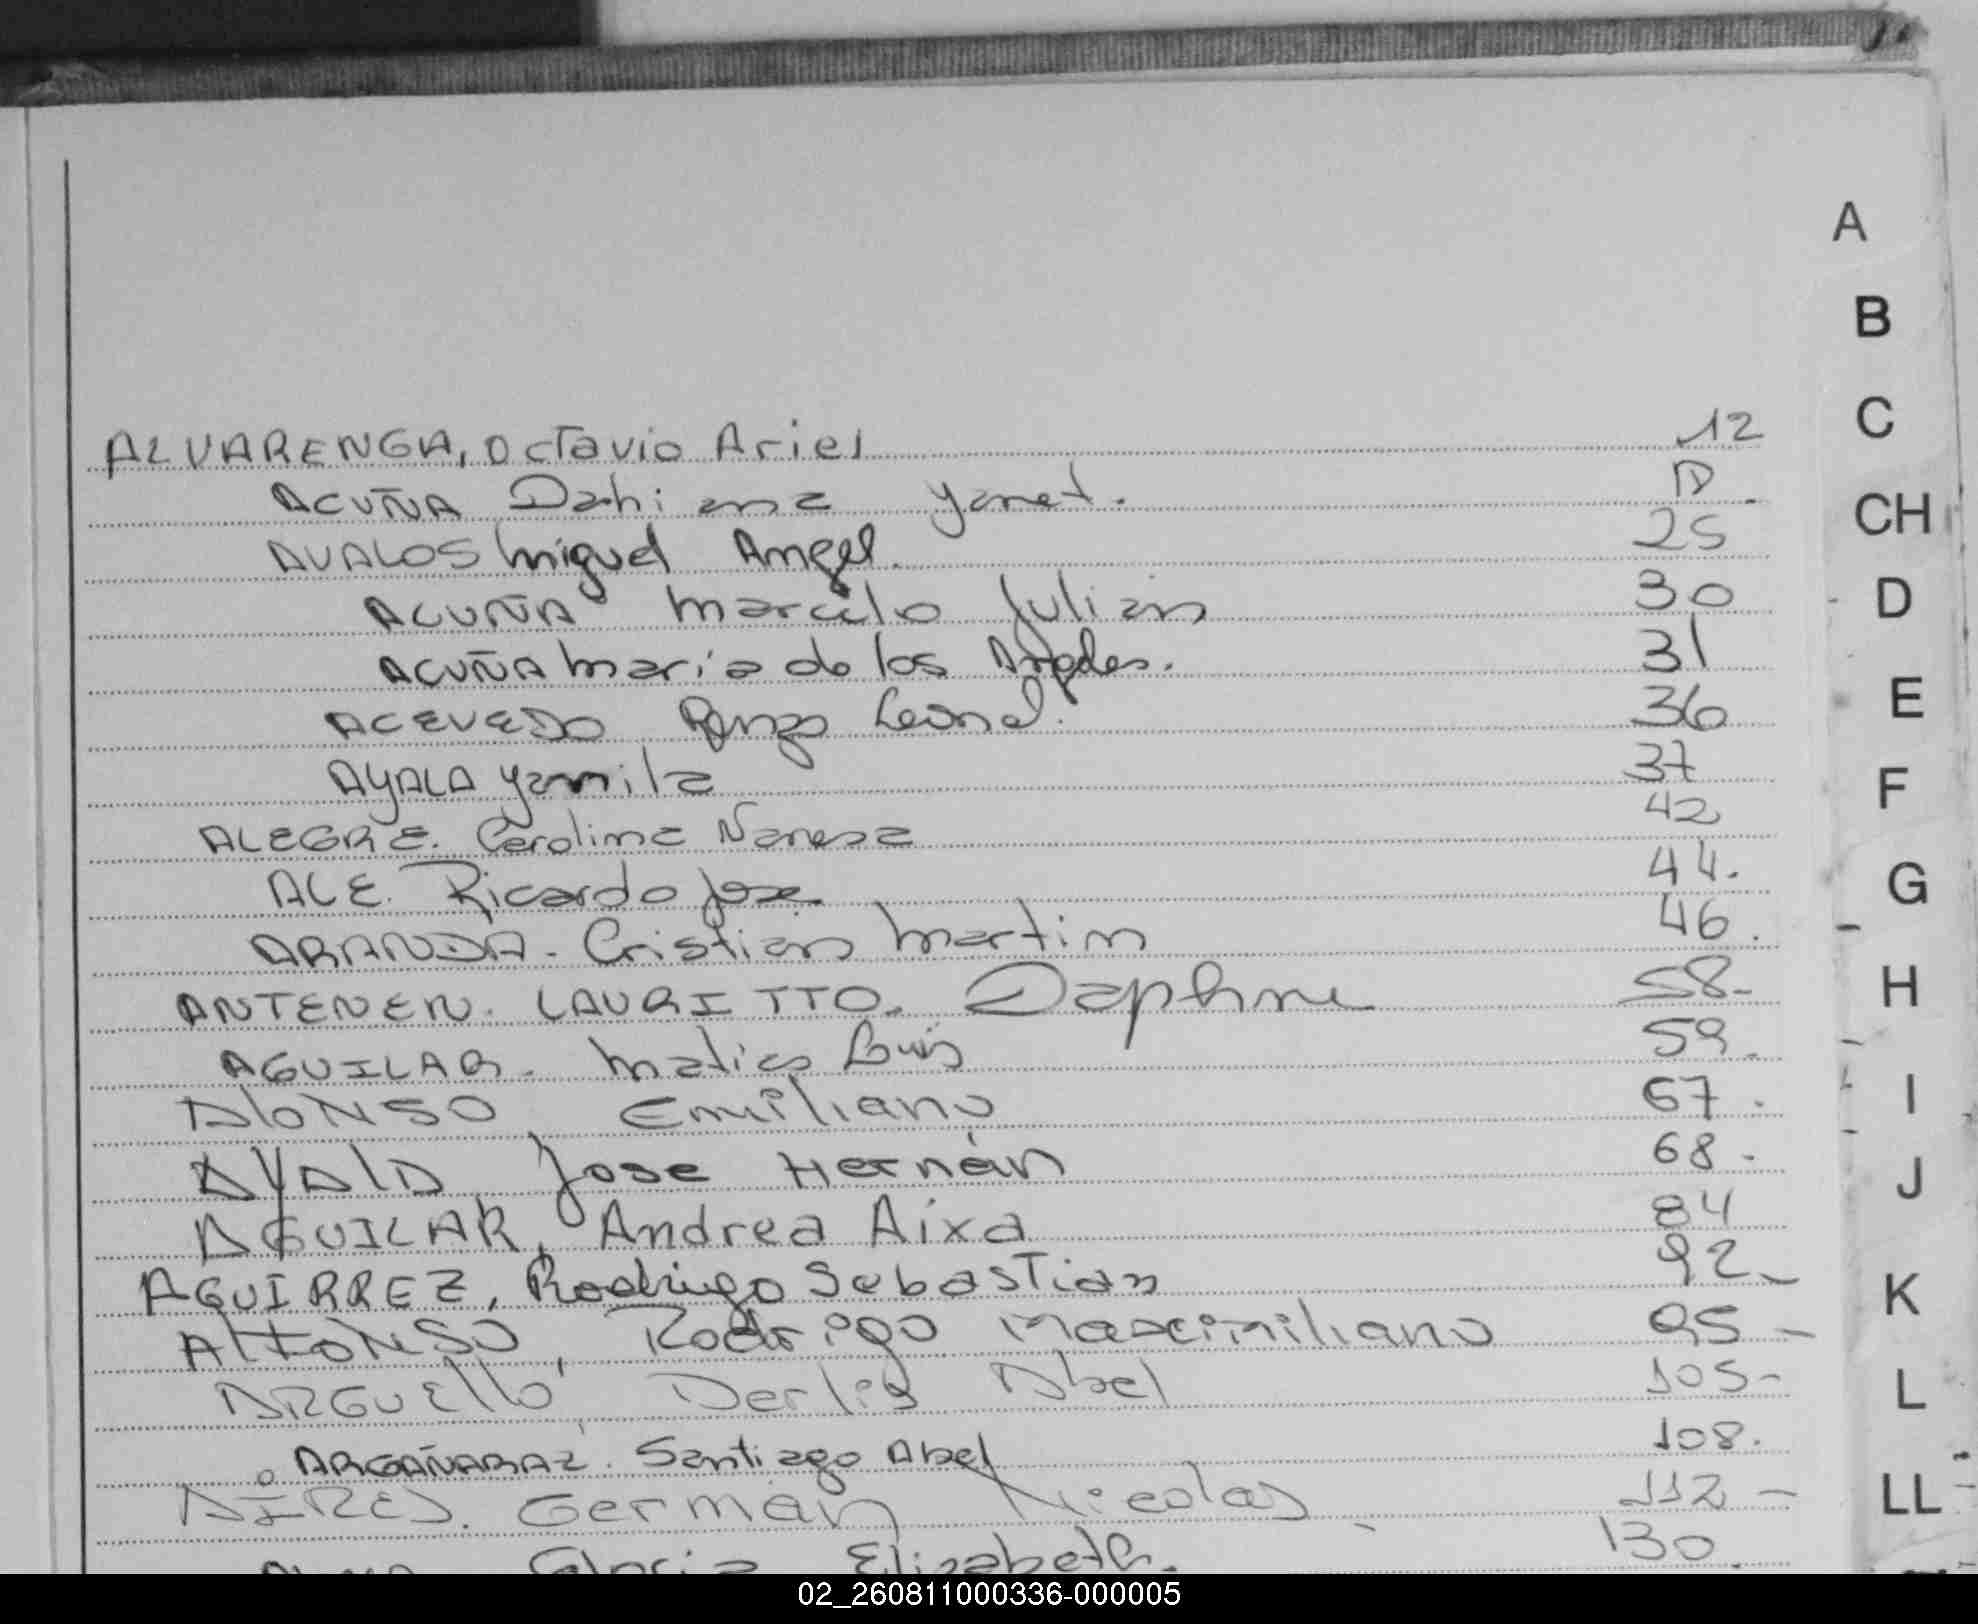 A
B
C
CH
D
E
F
G
H
I
J
K
L
LL
ALVARENGA, Octavio Ariel 12
ACUÑA Dahiana Yanet.
AVALOS Miguel Angel. 25
ACUÑA Marcelo Julian 30
ACUÑA Maria de los Angeles. 31
ACEVEDO Renzo Leonel. 36
AYALA Yamila 37
ALEGRE. Carolina Vanesa 42
ALE. Ricardo Jose 44.
ARANDA - Cristian Martin 46.
ANTENEN. LAURITTO. Daphne 58-
AGUILAR. Matias Luis 59.
AlONSO, Emiliano 67.
AYAlA, Jose Hernán 68.
AGUILAR, Andrea Aixa 84
AGUIRREZ, Rodrigo Sebastian 92-
AlfONSO, Rodrigo Maximiliano 95-
ARGUEllO, Derlis Abel 105-
ARGAÑARAZ. Santiago Abel 108.
AIRES. Germán Nicolas 112-
Gloria Elizabeth. 130.
02_260811000336-000005